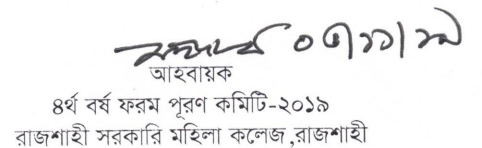 ০৩/১১/১৯
আহবায়ক
৪র্থ বর্ষ ফরম পূরণ কমিটি-২০১৯
রাজশাহী সরকারি মহিলা কলেজ,রাজশাহী